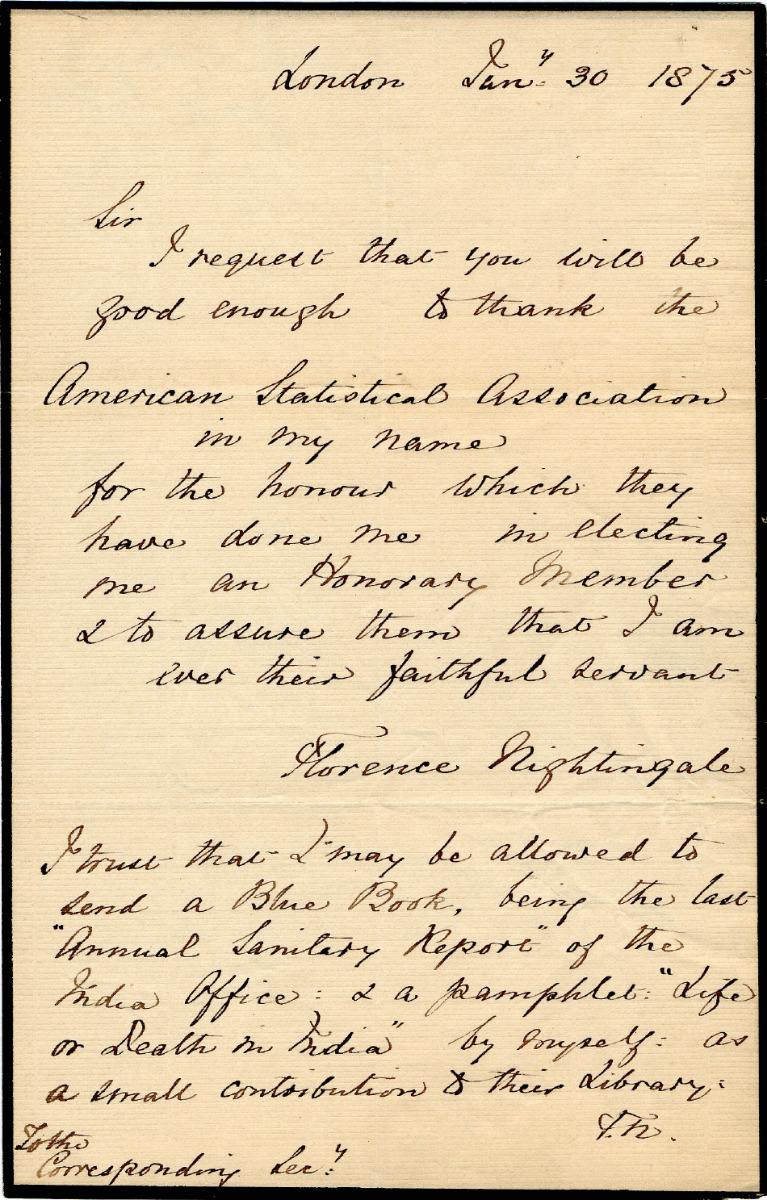 London Jan.y 30 1875
Sir
I request that you will be
good enough to thank the
American Statistical Association
in my name
for the honour which they
have done me in electing
me an Honorary Member
& to assure them that I am
ever their faithful servant
Florence Nightingale
I trust that I may be allowed to
send a Blue Book, being the last
"Annual Sanitary Report" of the
India Office: & a pamphlet: "Life
or Death in India" by myself: as
a small contribution to their Library:
F.N.
To the
Corresponding Sec.y